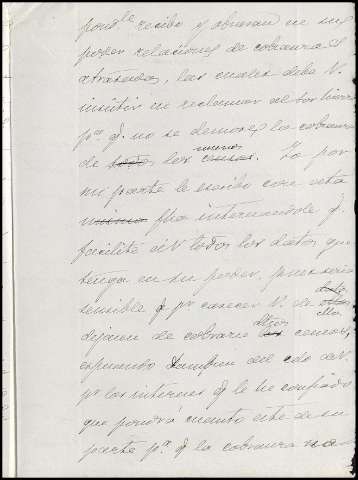 pondte recibo y obraran en su
poder relaciones de cobranza
atrasadas, las cuales debe V.
insistir en reclamar al Sor
pa. q. no se demore la cobranza
de los nuevos censos. Yo por
mi parte le escribo con esta
misma fha interesandole q.
facilite á V. todos los datos que
tenga en su poder, pues seria
sensible q pr carecer V. de ellos
dejaran de cobrarse algos censos,
esperando tambien del celo de V.
pr los intereses q le he confiado
que pondrá cuanto esté de su
parte pa. q la cobranza no